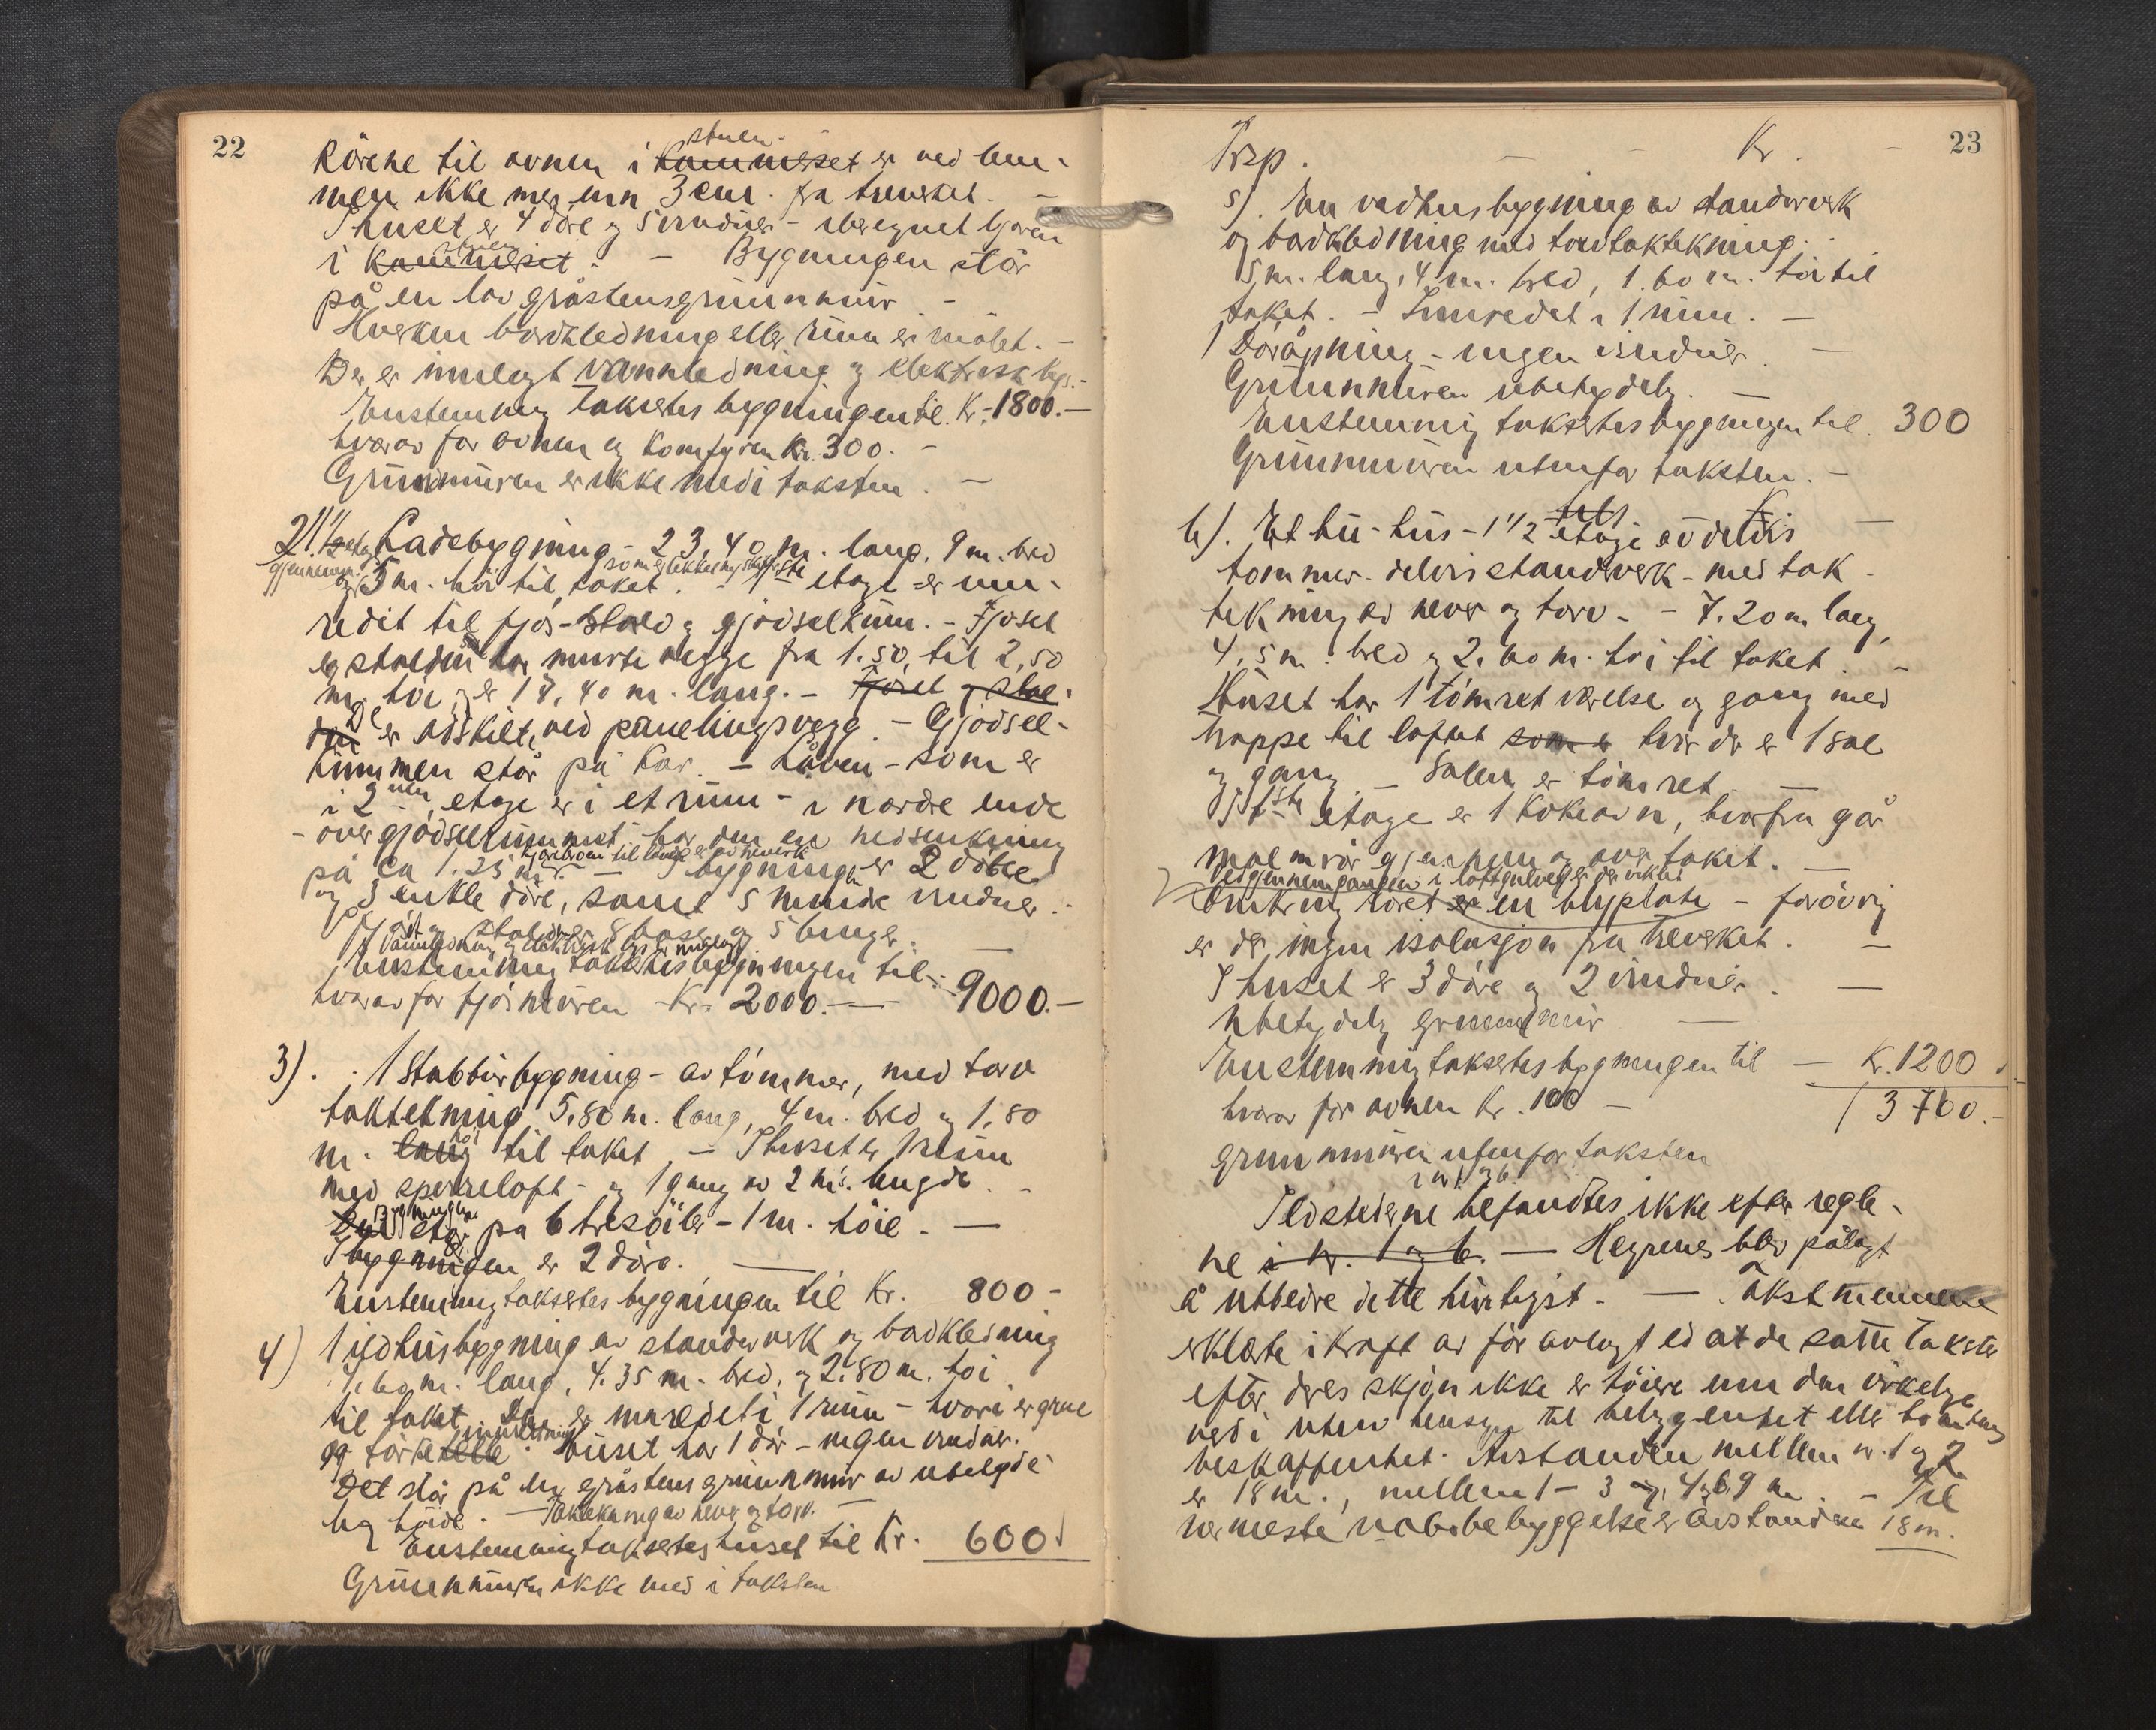 22
stuen
Rørene til ovnen i kammerset er ved lem-
men ikke mer enn 3 cm. fra treverket. -
I huset er 4 døre og 5 vinduer - iberegnet
stuen
i kammerset. - Bygningen står
på en lav gråstensgrunnmur -
Hverken bordkledning eller rum er målet. -
Der er innlagt vannledning og elektrisk lys. -
Enstemmig taksertes bygningen til Kr. 1800.-
hvorav for ovnen og komfyren Kr. 300. -
Grunnmuren er ikke med i taksten. -
2) 1 1/2 etg Ladebygning - 23,40 m. lang, 9 m. bred
gjennem.
og 5 m. høi til taket. - 1ste etage er inn-
redet til fjøs - stald og gjødselrum. - Fjøset
og stalden har murte vegge fra 1.50 til 2,50
m. høi og er 17,40 m. lang. - Fjøset og stal-
den De er adskilt ved panelingsvegg. - Gjødsel-
rummen står på kar. - Låven - som er
i 2nen etage er i et rum - i nordre ende
- over gjødselrummet har den en nedsenkning
kjørebroen til låve er av treverk
på ca 1.25 m. - I bygningen er 2 doble
og 3 enkle døre, samt 5 mindre vinduer. -
I fjøset og stalden 8 båser og 5 binger. -
Vannledning og elektrisk lys er innlagt.
Enstemmig taksertes bygningen til - 9000.-
hvorav for fjøsmuren Kr. 2000.-
3). 1 Stabbursbygning - av tømmer, med torv
taktekning 5,80 m. lang, 4 m. bred og 1,80
høi
m. lang til taket. - I huset er 1 rum
med sperreloft - og 1 gang av 2 m's. lengde. -
Bygningen
står på 6 tresøiler - 1 m. høie. -
I bygningen er 2 døre. -
Enstemmig taksertes bygningen til Kr. 800 -
4) 1 ildhusbygning av standerverk og bordkledning
7,60 m. lang, 4.35 m. bred, og 2.80 m. høi
til taket. Den er innredet i 1 rum - hvori er grue
og tørkehelle. Huset har 1 dør - ingen vinduer.
Det står på en gråstens grunnmur av ubetyde-
lig høide. - Taktekning av never og torv.
Enstemmig taksertes huset til Kr. 600
Grunnmuren ikke med i taksten
23
Trsp. - - Kr. -
5). En vedhusbygning av standerverk
og bordkledning med torvtaktekning.
5 m. lang, 4 m. bred, 1.60 m. høi til
taket. - Innredet i 1 rum. -
1 Døråpning - ingen vinduer. -
Grunnmuren ubetydelig. -
Enstemmig taksertes bygningen til 300
Grunnmuren utenfor taksten. -
6). Et hu-hus - 1 1/2 etage av delvis
tømmer - delvis standerverk - med tak-
tekning av never og torv. - 7.20 m lang,
4,5 m. bred og 2.60 m. høi til taket. -
Huset har 1 tømret værelse og gang med
trappe til loftet som er hvor der er 1 sal
og gang - Salen er tømret -
I 1ste etage er 1 kokeovn, hvorfra går
malmrør gjennem og over taket. -
Ved gjennemgangen i loftgulvet er der viklet
omkring røret er en blyplate - forøvrig
er der ingen isolasjon fra treverket. -
I huset er 3 døre og 2 vinduer. -
Ubetydelig grunnmur -
Enstemmig taksertes bygningen til - Kr. 1200
hvorav for ovnen Kr. 100 - 13700.-
grunnmuren utenfor taksten
i nr 1 og 6
Ildstederne befandtes ikke efter regle-
ne i nr. 1 og 6. - Hegrenes blev pålagt
å utbedre dette hurtigst. - Takstmennene
erklærte i kraft av før avlagt ed at de satte takster
efter deres skjøn ikke er høiere enn den virkelige
verdi uten hensyn til beliggenhet eller tomtens
beskaffenhet. Avstanden mellem nr. 1 og 2
er 18 m., mellem 1 - 3 og 4 og 6 9 m. - Til
nærmeste nabobebyggelse er avstanden 18 m.